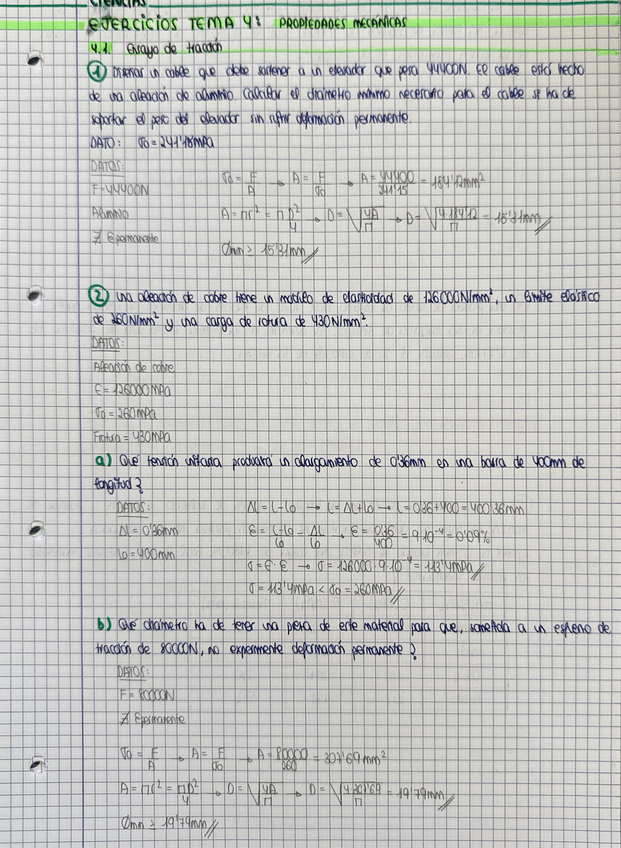 CIENCIAS
EJERCICIOS TEMA 4: PROPIEDADES MECÁNICAS
4.1. Ensayo de tracción
① Diseñar un cable que debe sostener a un elevador que pesa 44400N. El cable está hecho
de una aleación de aluminio. Calcular el diámetro mínimo necesario para el cable se ha de
soportar el peso del elevador sin sufrir deformación permanente.
DATO: σ0 = 241'15MPa
DATOS:
F=44400N
Aluminio
∄ εpermanente
σ0 = F/A → A = F/σ0 → A = 44400/241'15 = 184'12mm²
A = πr² = πD²/4 → D = √(4A/π) → D = √(4·184'12/π) = 15'31mm
Ømin ≥ 15'31mm
② Una aleación de cobre tiene un módulo de elasticidad de 126000N/mm², un límite elástico
de 260N/mm² y una carga de rotura de 430N/mm².
DATOS:
Aleación de cobre
E = 126000MPa
σ0 = 260MPa
Frotura = 430MPa
a) Qué tensión unitaria producirá un alargamiento de 0'36mm en una barra de 400mm de
longitud?
DATOS:
Δl = 0'36mm
l0 = 400mm
Δl = l-l0 → l = Δl+l0 → l = 0'36+400 = 400'36mm
ε = l-l0/l0 = Δl/l0 → ε = 0'36/400 = 9·10⁻⁴ = 0'09%
σ = E·ε → σ = 126000·9·10⁻⁴ = 113'4MPa
σ = 113'4MPa < σ0 = 260MPa
b) Qué diámetro ha de tener una pieza de este material para que, sometida a un esfuerzo de
tracción de 80000N, no experimente deformación permanente?
DATOS:
F = 80000N
∄ εpermanente
σ0 = F/A → A = F/σ0 → A = 80000/260 = 307'69mm²
A = πr² = πD²/4 → D = √(4A/π) → D = √(4·307'69/π) = 19'79mm
Ømin ≥ 19'79mm